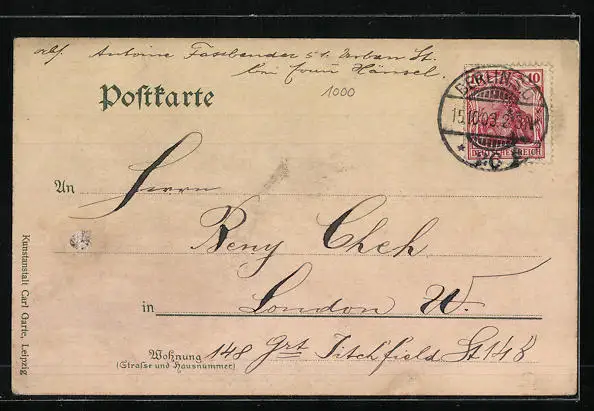 abs. Antoine Fassbender 51. Urban St.
bei Hänsel.
1000
Postkarte
BERLIN
DEUTSCHES REICH
10
An Herrn
Beny Cheh
in London W.
Wohnung 148 Grt Titchfield St 148
(Strasse und Hausnummer)
Kunstanstalt Carl Garte, Leipzig